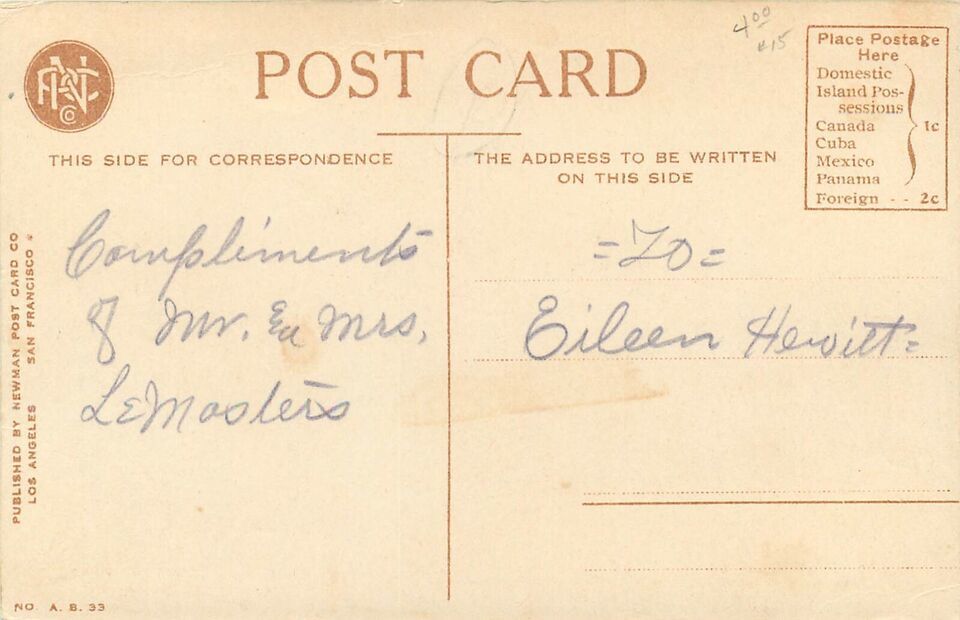 4.00
#15
POST CARD
Place Postage
Here
Domestic
Island Pos-
sessions
Canada
Cuba
Mexico
Panama
1c
Foreign -- 2c
THIS SIDE FOR CORRESPONDENCE
THE ADDRESS TO BE WRITTEN
ON THIS SIDE
Compliments
of Mr. & Mrs.
LeMasters
=To=
Eileen Hewitt=
PUBLISHED BY NEWMAN POST CARD CO
LOS ANGELES SAN FRANCISCO
NO. A. B. 33